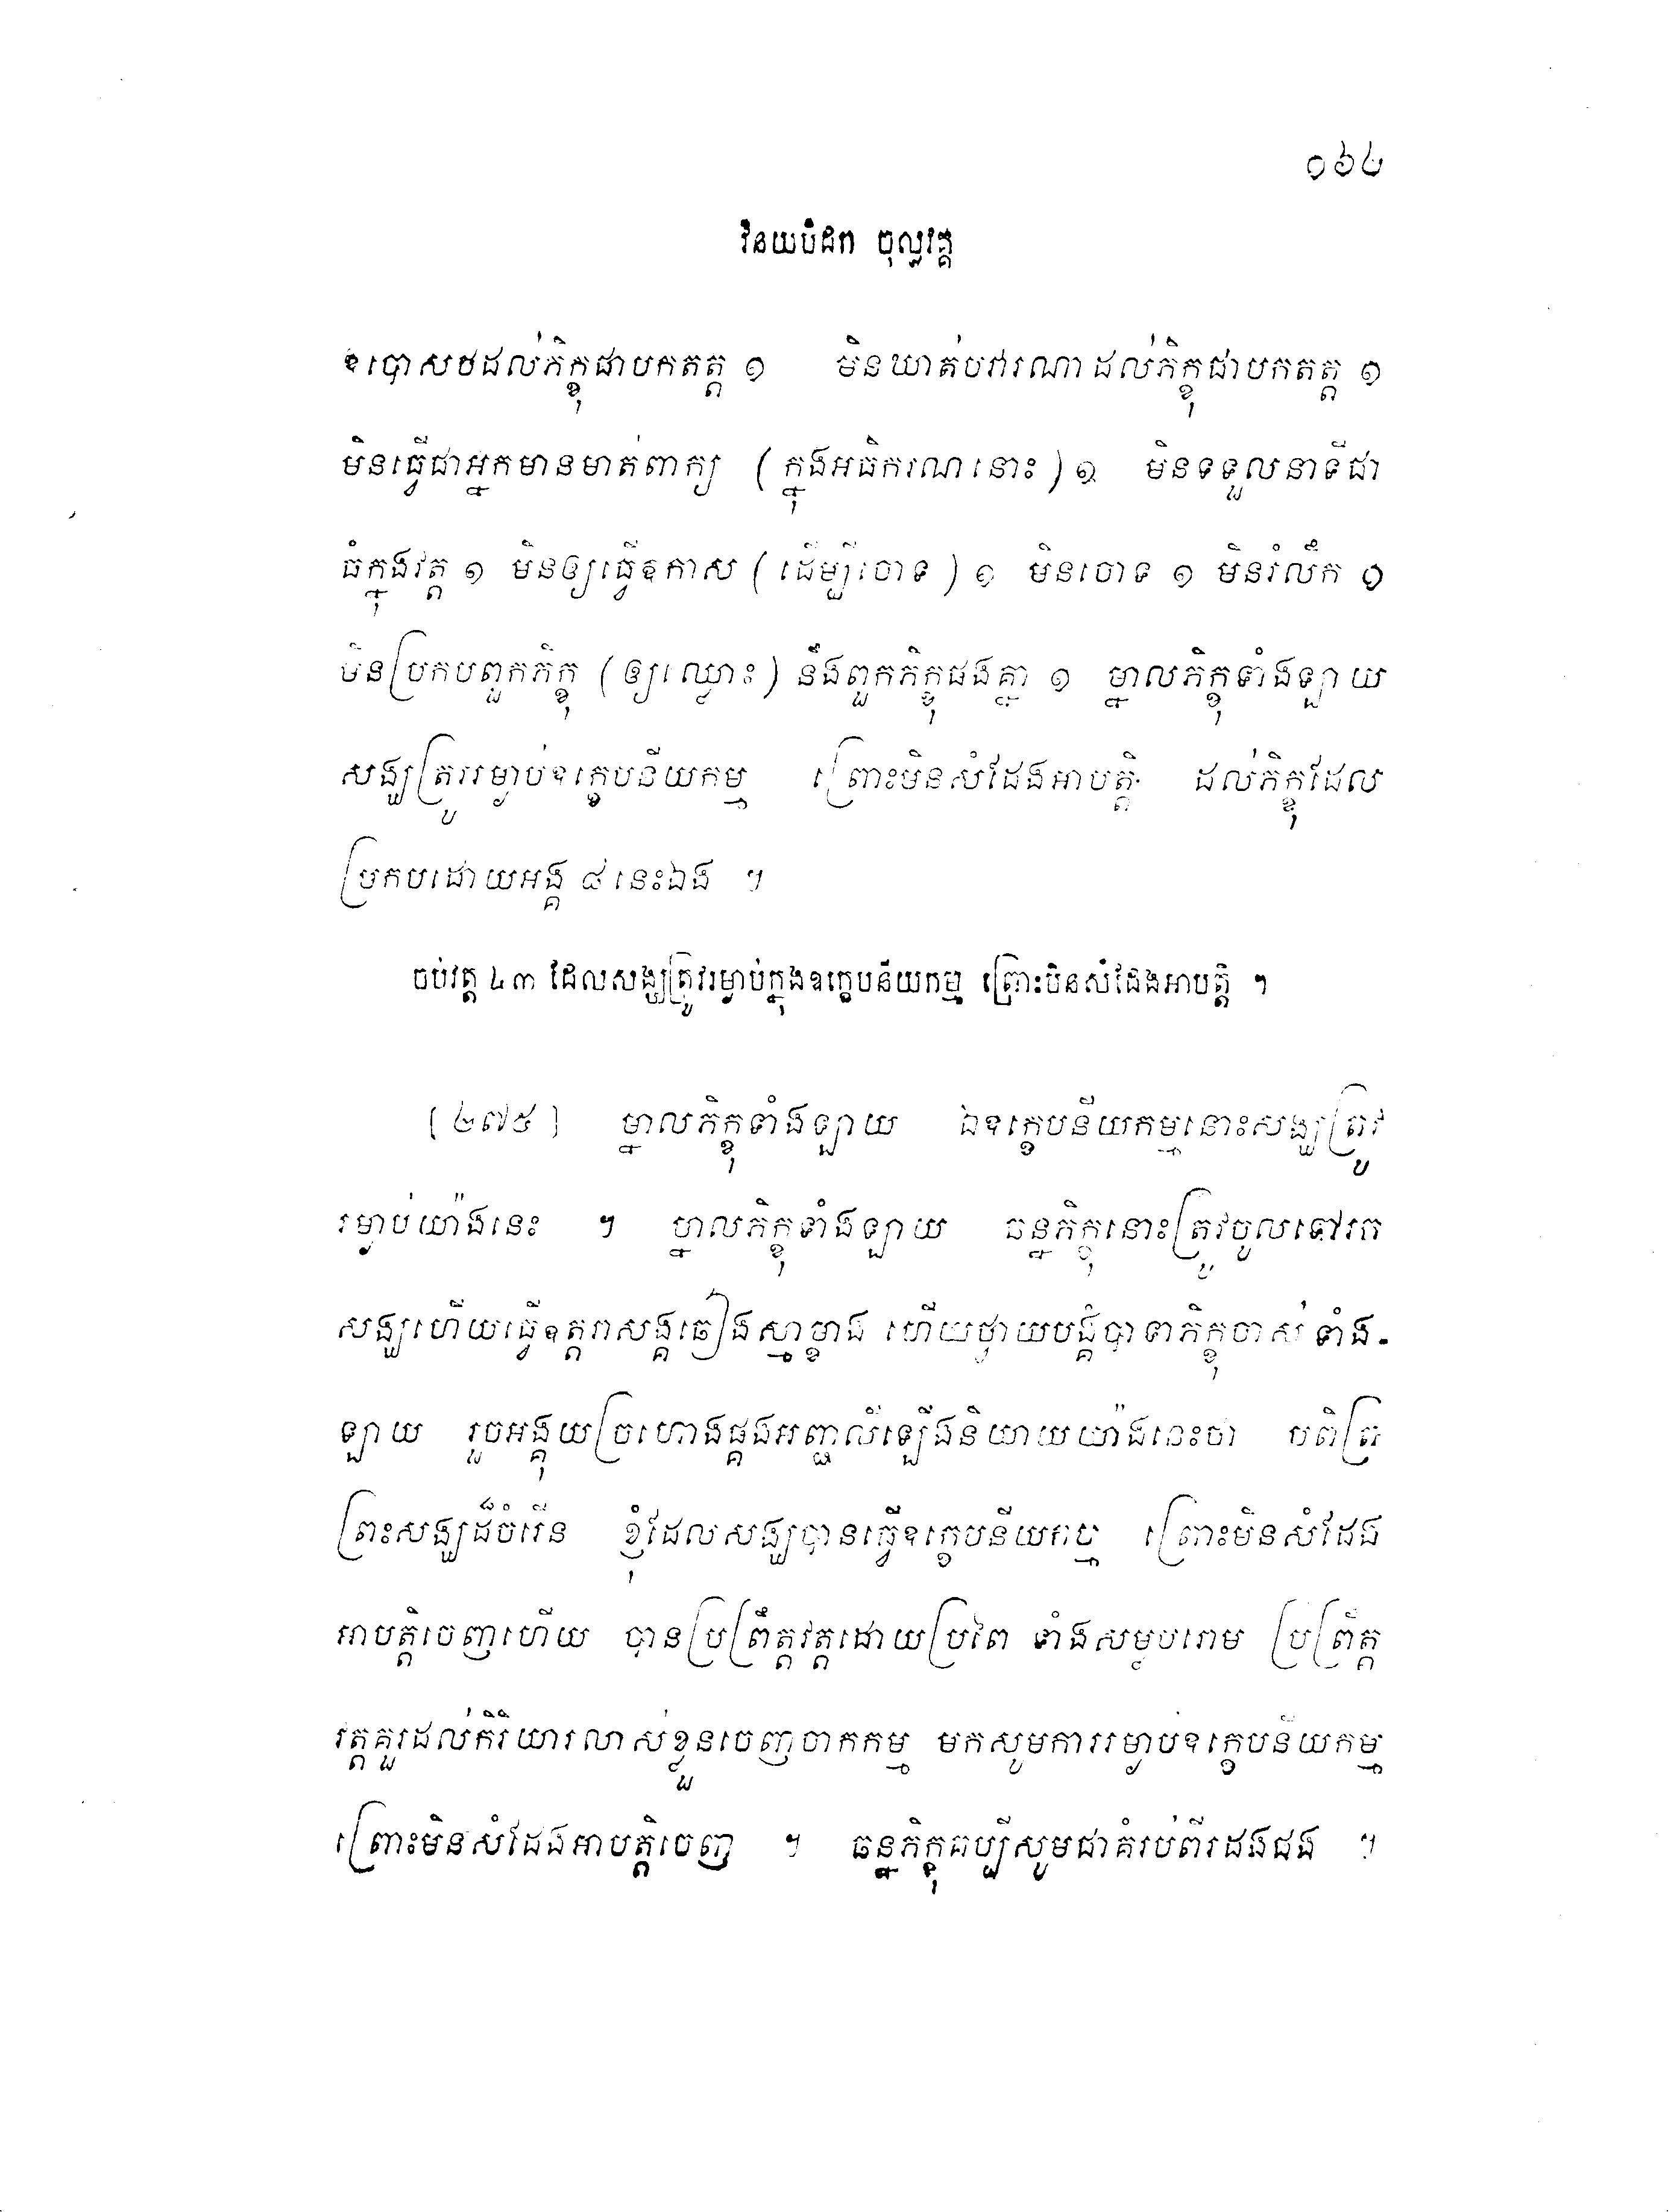 ១៦៤
វិនយបិដក ចុល្លវគ្គ
ឧបោសថដល់ភិក្ខុជាបកតត្ត ១ មិនឃាត់បវារណាដល់ភិក្ខុជាបកតត្ត ១
មិនធ្វើជាអ្នកមានមាត់ពាក្យ (ក្នុងអធិករណនោះ) ១ មិនទទួលនាទីជា
ធំក្នុងវត្ត ១ មិនឲ្យធ្វើឧកាស (ដើម្បីចោទ) ១ មិនចោទ ១ មិនរំលឹក ១
មិនប្រកបពួកភិក្ខុ (ឲ្យឈ្លោះ) នឹងពួកភិក្ខុផងគ្នា ១ ម្នាលភិក្ខុទាំងឡាយ
សង្ឃត្រូវរម្ងាប់ឧក្ខេបនីយកម្ម ព្រោះមិនសំដែងអាបត្តិ ដល់ភិក្ខុដែល
ប្រកបដោយអង្គ ៨ នេះឯង ។
ចប់វត្ត ៤៣ ដែលសង្ឃត្រូវរម្ងាប់ក្នុងឧក្ខេបនីយកម្ម ព្រោះមិនសំដែងអាបត្តិ ។
[២៧៥] ម្នាលភិក្ខុទាំងឡាយ ឯឧក្ខេបនីយកម្មនោះសង្ឃត្រូវ
រម្ងាប់យ៉ាងនេះ ។ ម្នាលភិក្ខុទាំងឡាយ ធន្នភិក្ខុនោះត្រូវចូលទៅរក
សង្ឃហើយធ្វើឧត្តរាសង្គឆៀងស្មាម្ខាង ហើយថ្វាយបង្គំបាទាភិក្ខុចាស់ទាំង-
ឡាយ រួចអង្គុយច្រហោងផ្គងអញ្ជលីឡើងនិយាយយ៉ាងនេះថា បពិត្រ
ព្រះសង្ឃដ៏ចំរើន ខ្ញុំដែលសង្ឃបានធ្វើឧក្ខេបនីយកម្ម ព្រោះមិនសំដែង
អាបត្តិចេញហើយ បានប្រព្រឹត្តវត្តដោយប្រពៃ ទាំងសម្លបរោម ប្រព្រឹត្ត
វត្តគួរដល់កិរិយារលាស់ខ្លួនចេញចាកកម្ម មកសូមការរម្ងាប់ឧក្ខេបនីយកម្ម
ព្រោះមិនសំដែងអាបត្តិចេញ ។ ធន្នភិក្ខុគប្បីសូមជាគំរប់ពីរដងផង ។